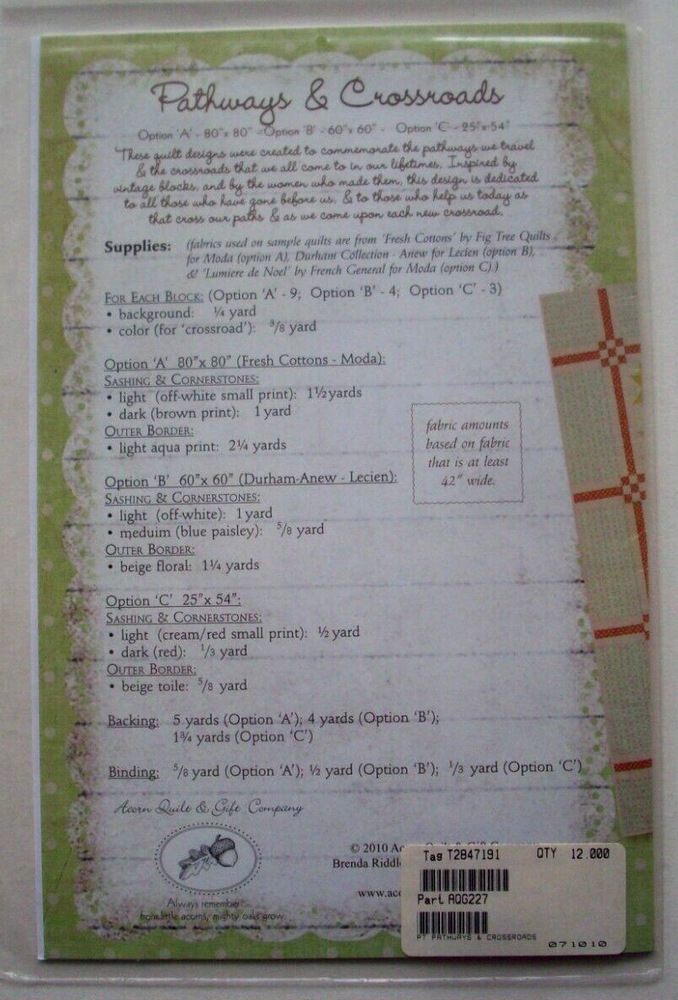 Pathways & Crossroads
Option 'A' - 80"x 80" - Option 'B' - 60"x 60" - Option 'C' - 25"x 54"
These quilt designs were created to commemorate the pathways we travel
& the crossroads that we all come to in our lifetimes. Inspired by
vintage blocks, and by the women who made them, this design is dedicated
to all those who have gone before us, & to those who help us today as
that cross our paths & as we come upon each new crossroad.
Supplies: (fabrics used on sample quilts are from 'Fresh Cottons' by Fig Tree Quilts
for Moda (option A), Durham Collection - Anew for Lecien (option B),
& 'Lumiere de Noel' by French General for Moda (option C).)
FOR EACH BLOCK: (Option 'A' - 9; Option 'B' - 4; Option 'C' - 3)
• background: ¼ yard
• color (for 'crossroad'): 3/8 yard
Option 'A' 80"x 80" (Fresh Cottons - Moda):
SASHING & CORNERSTONES:
• light (off-white small print): 1½ yards
• dark (brown print): 1 yard
OUTER BORDER:
• light aqua print: 2¼ yards
fabric amounts
based on fabric
that is at least
42" wide.
Option 'B' 60"x 60" (Durham-Anew - Lecien):
SASHING & CORNERSTONES:
• light (off-white): 1 yard
• meduim (blue paisley): 5/8 yard
OUTER BORDER:
• beige floral: 1¼ yards
Option 'C' 25"x 54":
SASHING & CORNERSTONES:
• light (cream/red small print): ½ yard
• dark (red): 1/3 yard
OUTER BORDER:
• beige toile: 5/8 yard
Backing: 5 yards (Option 'A'); 4 yards (Option 'B');
1¾ yards (Option 'C')
Binding: 5/8 yard (Option 'A'); ½ yard (Option 'B'); 1/3 yard (Option 'C')
Acorn Quilt & Gift Company
Always remember
from little acorns, mighty oaks grow.
© 2010
Brenda Riddl
www.aco
Tag T2847191 QTY 12.000
Part AQG227
PT PATHWAYS & CROSSROADS
071010